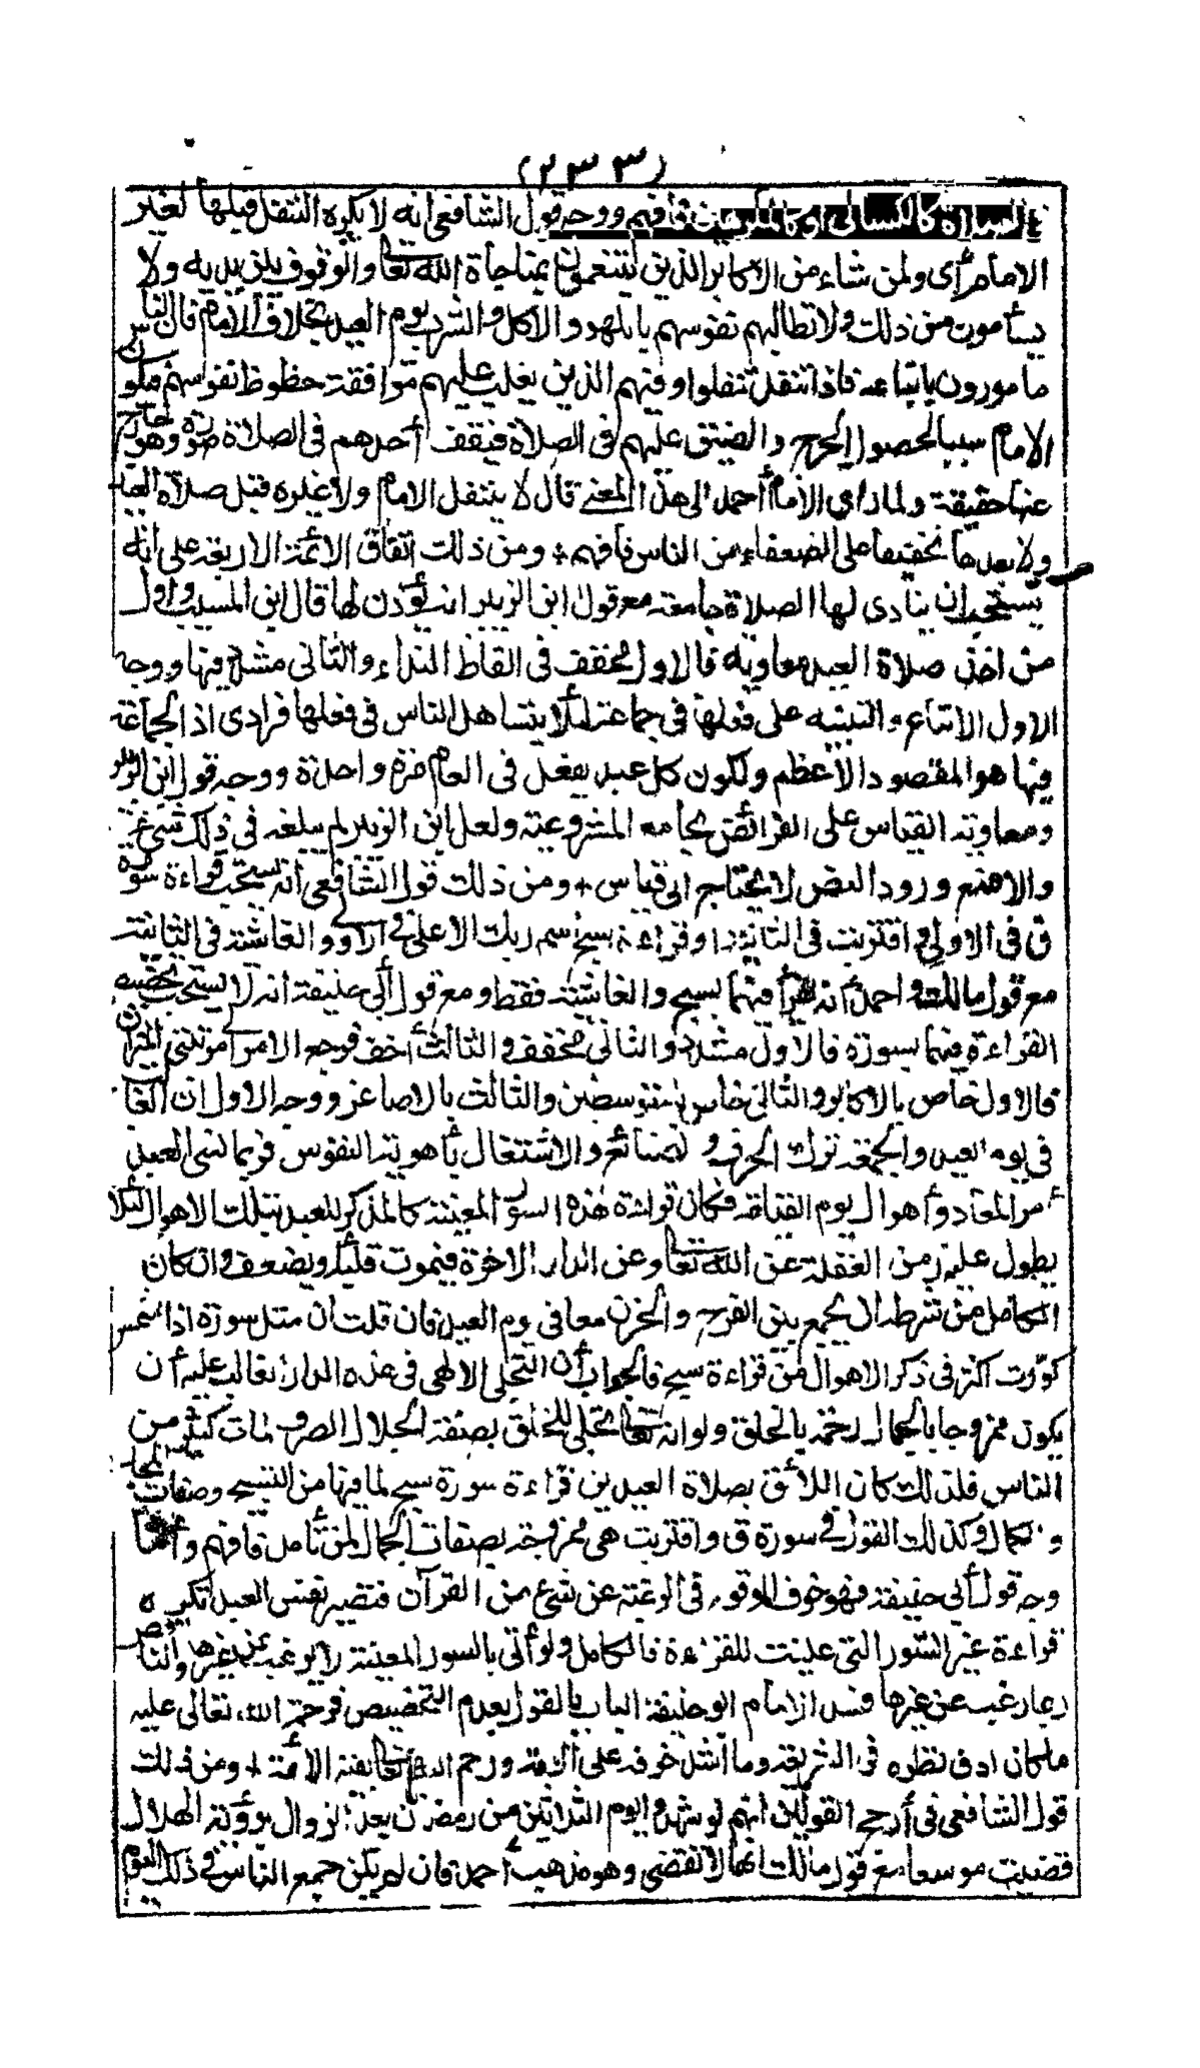 (٢٣٣)
الصلاة كالكسالى أو كالمكرهين فافهم ووجه قول الشافعي انه لا يكره التنفل قبلها لغير
الامام أي ولمن شاء من الاكابر الذين يتنعمون بمناجاة الله تعالى والوقوف بين يديه ولا
يسأمون من ذلك ولا تطالبهم نفوسهم باللهو والاكل والشرب يوم العيد بخلاف الامام فان الناس
مامورون باتباعه فاذا تنفل تنفلوا وفيهم الذين يغلب عليهم موافقة حظوظ نفوسهم فيكون
الامام سببا لحصول الحرج والضيق عليهم في الصلاة فيقف أحدهم في الصلاة صورة وهو خارج
عنها حقيقة ولما رأى الامام أحمد الى هذا المعنى قال لا يتنفل الامام ولا غيره قبل صلاة العيد
ولا بعدها تخفيفا على الضعفاء من الناس فافهم + ومن ذلك اتفاق الائمة الاربعة على أنه
يستحب ان ينادى لها الصلاة جامعة مع قول ابن الزبير انه يؤذن لها قال ابن المسيب وأول
من اذن صلاة العيد معاوية فالاول مخفف في الفاظ النداء والثاني مشدد فيها ووجه
الاول الاتباع والتنبيه على فعلها في جماعة لئلا يتساهل الناس في فعلها فرادى اذ الجماعة
فيها هو المقصود الأعظم ولكون كل عيد يفعل في العام مرة واحدة ووجه قول ابن الزبير
ومعاوية القياس على الفرائض بجامع المشروعية ولعل ابن الزبير لم يبلغه في ذلك شيء
والا فمع ورود النص لا يحتاج الى قياس + ومن ذلك قول الشافعي أنه يستحب قراءة سورة
ق في الاولى واقتربت في الثانية أو قراءة سبح اسم ربك الاعلى في الاولى والغاشية في الثانية
مع قول مالك وأحمد أنه يقرأ فيهما بسبح والغاشية فقط ومع قول أبي حنيفة انه لا يستحب تخصيص
القراءة فيهما بسورة فالاول مشدد والثاني مخفف والثالث أخف فرجع الامر الى مرتبتي الميزان
فالاول خاص بالاكابر والثاني خاص بالمتوسطين والثالث بالاصاغر ووجه الاول ان الغالب
في يوم العيد والجمعة ترك الحرف والصنائع والاشتغال بأهوية النفوس فربما نسي العبد
أمر المعاد وأهوال يوم القيامة فكان قراءة هذه السور المعينة كالمذكر للعبد بتلك الاهوال لئلا
يطول عليه زمن الغفلة عن الله تعالى وعن الدار الآخرة فيموت قلبه أو يضعف وان كان
الكامل من شرطه ان يجمع بين الفرح والحزن معا في يوم العيد فان قلت ان مثل سورة اذا الشمس
كورت اكثر في ذكر الاهوال من قراءة سبح فالجواب أن التجلي الالهي في هذه الدار الغالب عليه أن
يكون ممزوجا بالجمال رحمة بالخلق ولو انه تعالى تجلى للخلق بصفة الجلال الصرف لمات كثير من
الناس فلذلك كان اللائق بصلاة العيدين قراءة سورة سبح لما فيها من التسبيح وصفات الجمال
والكمال وكذلك القول في سورة ق واقتربت هي ممزوجة بصفات الجمال لمن تأمل فافهم وأما
وجه قول أبي حنيفة فهو خوف الوقوع في الرغبة عن شيء من القرآن فتصير نفس العبد تكره
قراءة غير السور التي عينت للقراءة فالكامل ولو أتى بالسور المعينة لا يرغب عن غيرها والناقص
ربما رغب عن غيرها فسد الامام ابو حنيفة الباب بالقول بعدم التخصيص فرحمة الله تعالى عليه
ما كان ادق نظره في الشريعة وما أشد خوفه على الامة ورحم الله تعالى بقية الأئمة + ومن ذلك
قول الشافعي في أرجح القولين انهم لو شهدوا يوم الثلاثين من رمضان بعد الزوال برؤية الهلال
قضيت موسعا مع قول مالك انها لا تقضى وهو مذهب أحمد فان لم يمكن جمع الناس في ذلك اليوم